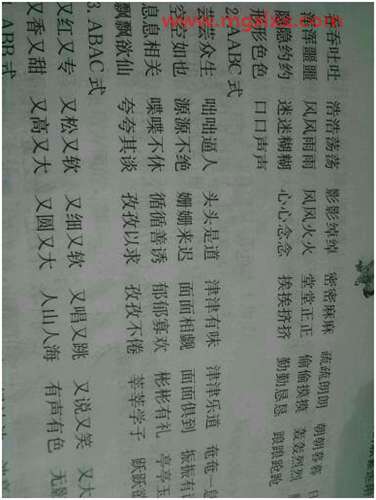 吞吐吐 浩浩荡荡 影影绰绰 密密麻麻 疏疏朗朗 朝朝暮暮
风风雨雨 风风火火 堂堂正正 偷偷摸摸 轰轰烈烈
隐隐约约 迷迷糊糊 心心念念 挨挨挤挤 勤勤恳恳 踉踉跄跄
形形色色 口口声声
2. AABC 式
芸芸众生 咄咄逼人 头头是道 津津有味 津津乐道 奄奄一
空空如也 源源不绝 姗姗来迟 面面相觑 面面俱到 振振有
息息相关 喋喋不休 循循善诱 郁郁寡欢 彬彬有礼 亭亭玉
飘飘欲仙 夸夸其谈 孜孜以求 孜孜不倦 莘莘学子 跃跃
3. ABAC 式
又红又专 又松又软 又细又软 又唱又跳 又说又笑 又大
又香又甜 又高又大 又圆又大 人山人海 有声有色 无
ABB 式